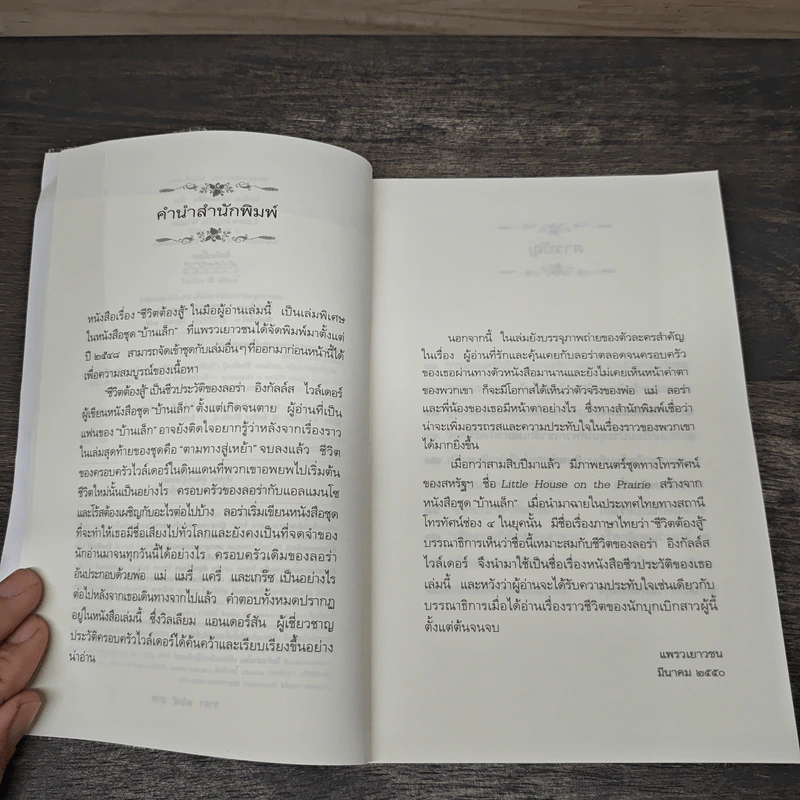 คำนำสำนักพิมพ์
หนังสือเรื่อง "ชีวิตต้องสู้" ในมือผู้อ่านเล่มนี้ เป็นเล่มพิเศษ
ในหนังสือชุด "บ้านเล็ก" ที่แพรวเยาวชนได้จัดพิมพ์มาตั้งแต่
ปี ๒๕๔๘ สามารถจัดเข้าชุดกับเล่มอื่นๆ ที่ออกมาก่อนหน้านี้ได้
เพื่อความสมบูรณ์ของเนื้อหา
"ชีวิตต้องสู้" เป็นชีวประวัติของลอร่า อิงกัลล์ส ไวล์เดอร์
ผู้เขียนหนังสือชุด "บ้านเล็ก" ตั้งแต่เกิดจนตาย ผู้อ่านที่เป็น
แฟนของ "บ้านเล็ก" อาจยังติดใจอยากรู้ว่าหลังจากเรื่องราว
ในเล่มสุดท้ายของชุดคือ "ตามทางสู่เหย้า" จบลงแล้ว ชีวิต
ของครอบครัวไวล์เดอร์ในดินแดนที่พวกเขาอพยพไปเริ่มต้น
ชีวิตใหม่นั้นเป็นอย่างไร ครอบครัวของลอร่ากับแอลแมนโซ
และโร้สต้องเผชิญกับอะไรต่อไปบ้าง ลอร่าเริ่มเขียนหนังสือชุด
ที่จะทำให้เธอมีชื่อเสียงไปทั่วโลกและยังคงเป็นที่จดจำของ
นักอ่านมาจนทุกวันนี้ได้อย่างไร ครอบครัวเดิมของลอร่า
อันประกอบด้วยพ่อ แม่ แมรี่ แครี่ และเกร๊ซ เป็นอย่างไร
ต่อไปหลังจากเธอเดินทางจากไปแล้ว คำตอบทั้งหมดปรากฏ
อยู่ในหนังสือเล่มนี้ ซึ่งวิลเลียม แอนเดอร์สัน ผู้เชี่ยวชาญ
ประวัติครอบครัวไวล์เดอร์ได้ค้นคว้าและเรียบเรียงขึ้นอย่าง
น่าอ่าน
นอกจากนี้ ในเล่มยังบรรจุภาพถ่ายของตัวละครสำคัญ
ในเรื่อง ผู้อ่านที่รักและคุ้นเคยกับลอร่าตลอดจนครอบครัว
ของเธอผ่านทางตัวหนังสือมานานและยังไม่เคยเห็นหน้าค่าตา
ของพวกเขา ก็จะมีโอกาสได้เห็นว่าตัวจริงของพ่อ แม่ ลอร่า
และพี่น้องของเธอมีหน้าตาอย่างไร ซึ่งทางสำนักพิมพ์เชื่อว่า
น่าจะเพิ่มอรรถรสและความประทับใจในเรื่องราวของพวกเขา
ได้มากยิ่งขึ้น
เมื่อกว่าสามสิบปีมาแล้ว มีภาพยนตร์ชุดทางโทรทัศน์
ของสหรัฐฯ ชื่อ Little House on the Prairie สร้างจาก
หนังสือชุด "บ้านเล็ก" เมื่อนำมาฉายในประเทศไทยทางสถานี
โทรทัศน์ช่อง ๕ ในยุคนั้น มีชื่อเรื่องภาษาไทยว่า "ชีวิตต้องสู้"
บรรณาธิการเห็นว่าชื่อนี้เหมาะสมกับชีวิตของลอร่า อิงกัลล์ส
ไวล์เดอร์ จึงนำมาใช้เป็นชื่อเรื่องหนังสือชีวประวัติของเธอ
เล่มนี้ และหวังว่าผู้อ่านจะได้รับความประทับใจเช่นเดียวกับ
บรรณาธิการเมื่อได้อ่านเรื่องราวชีวิตของนักบุกเบิกสาวผู้นี้
ตั้งแต่ต้นจนจบ
แพรวเยาวชน
มีนาคม ๒๕๕๐